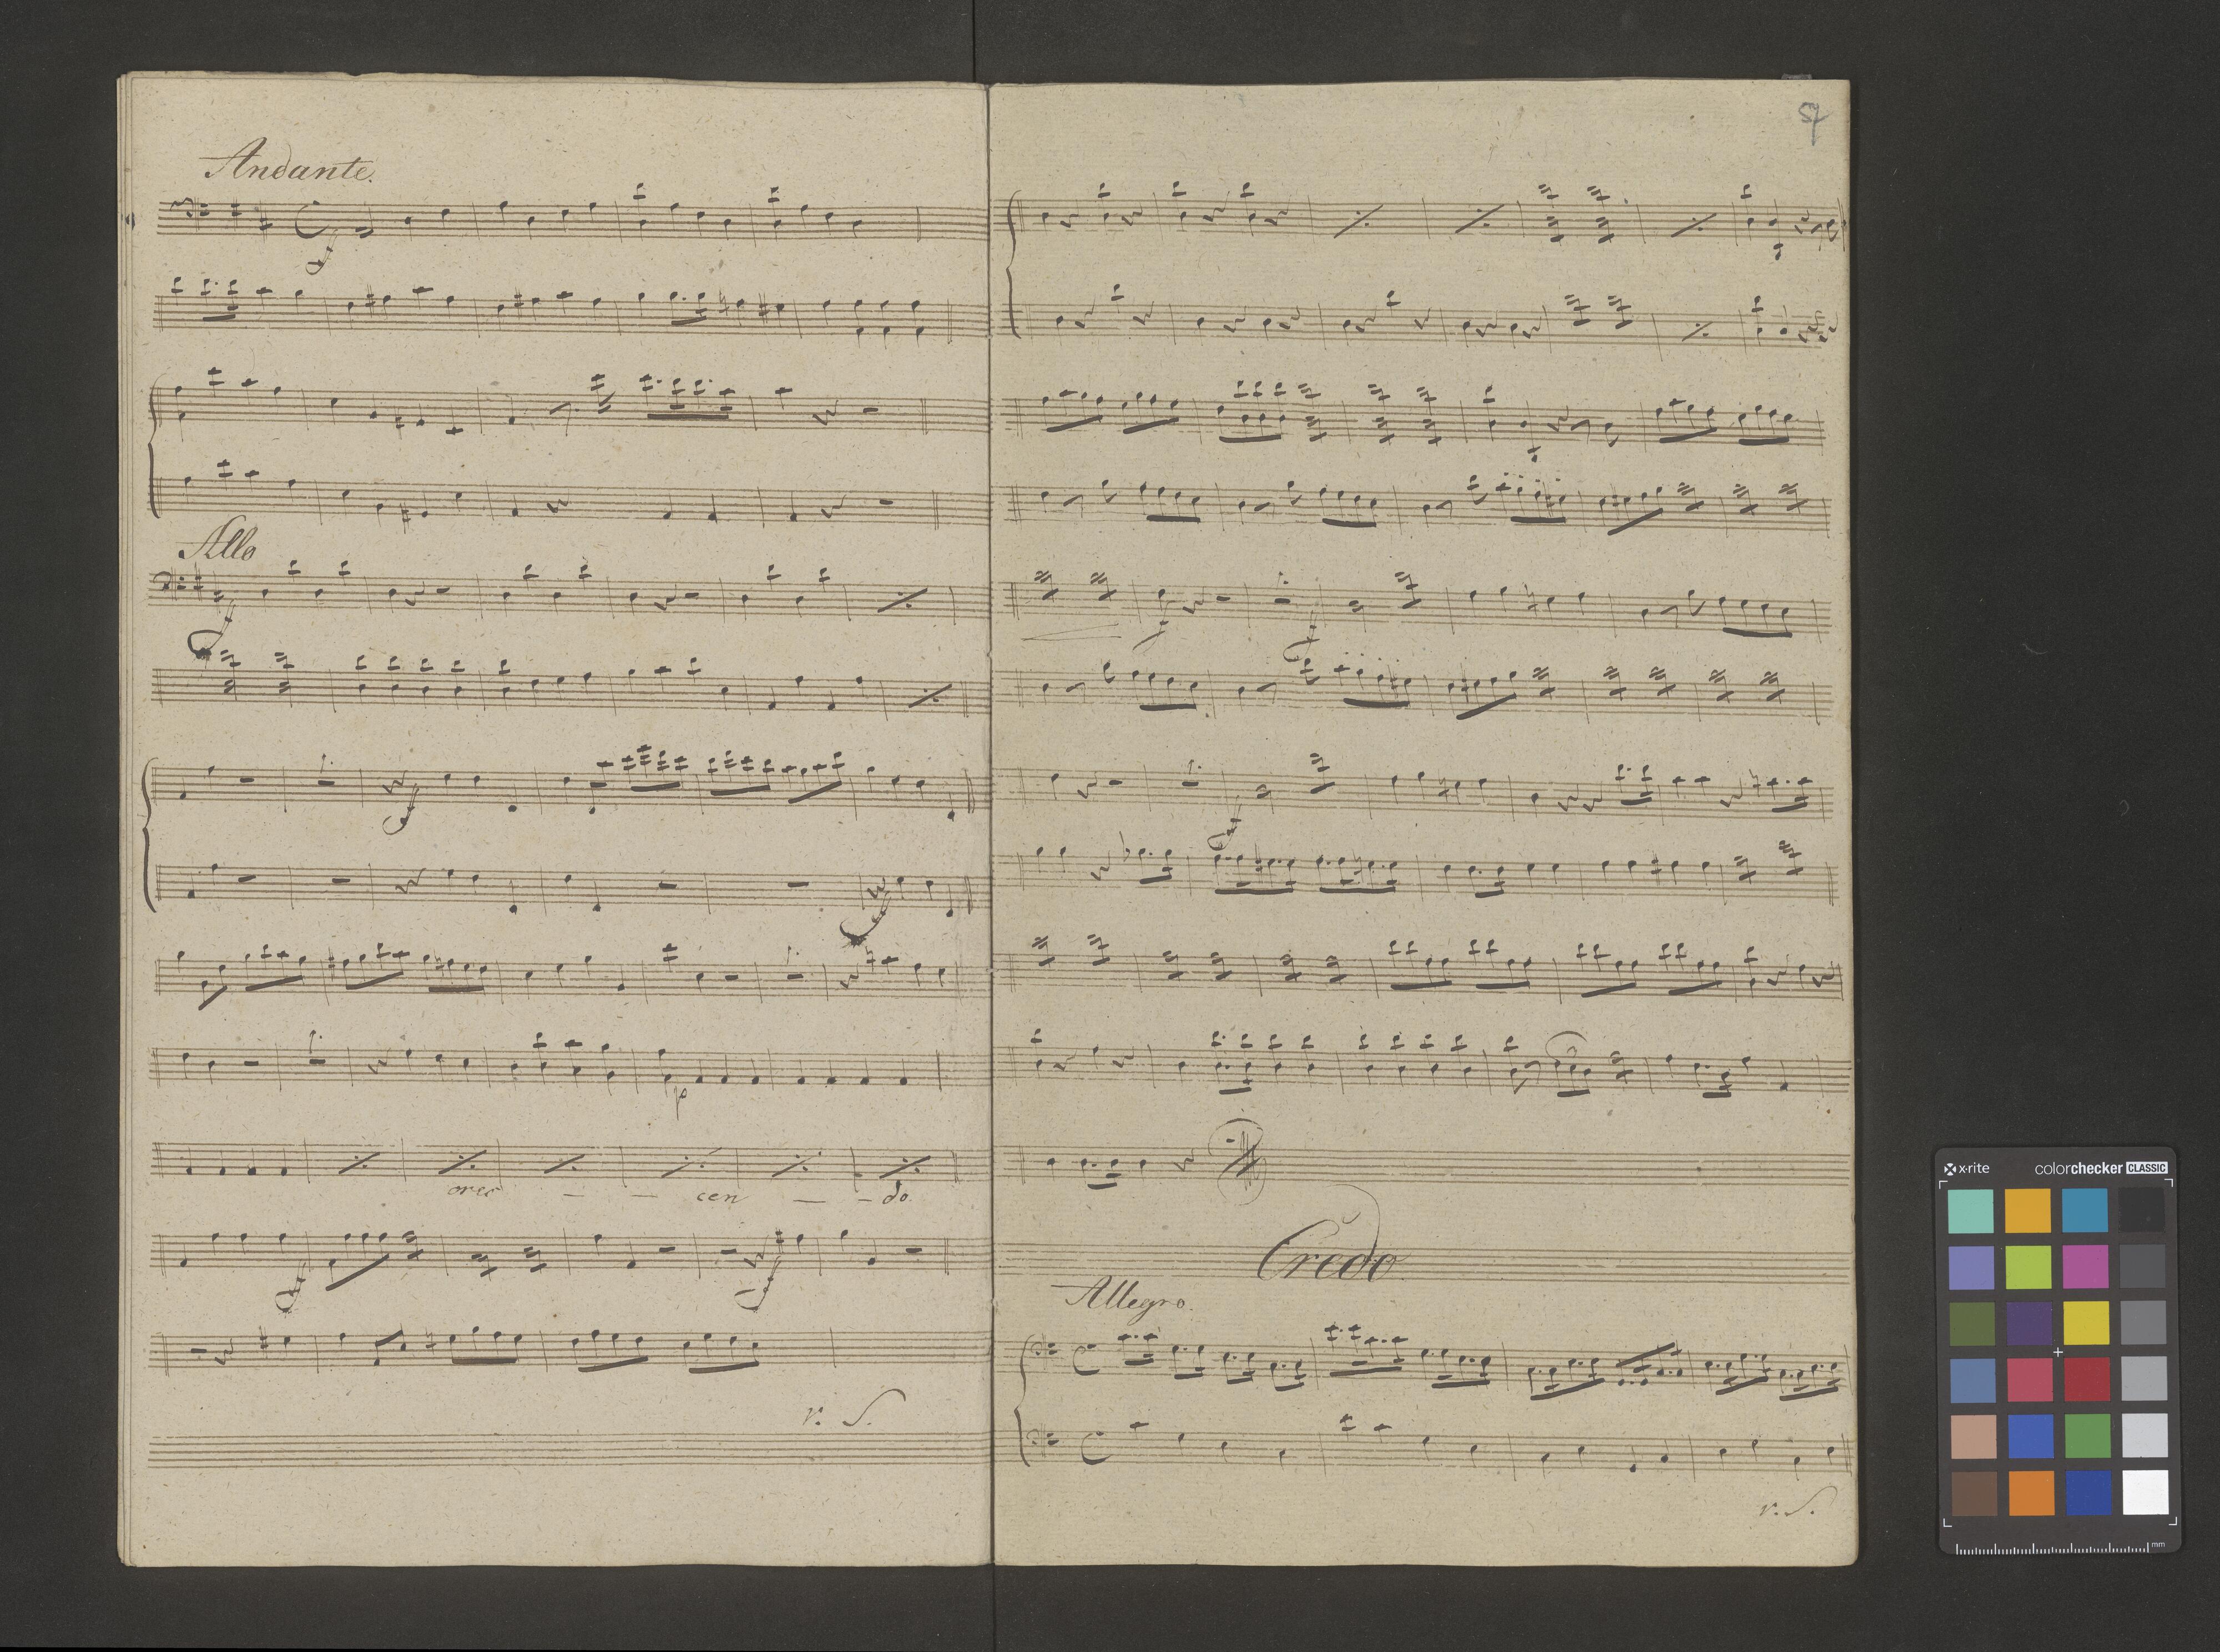 Andante.
f
Allo
f
f
f
p
cres — — cen — — do.
f f
v. S.
57
f f
f
Credo
Allegro.
v. S.
x-rite colorchecker CLASSIC
mm